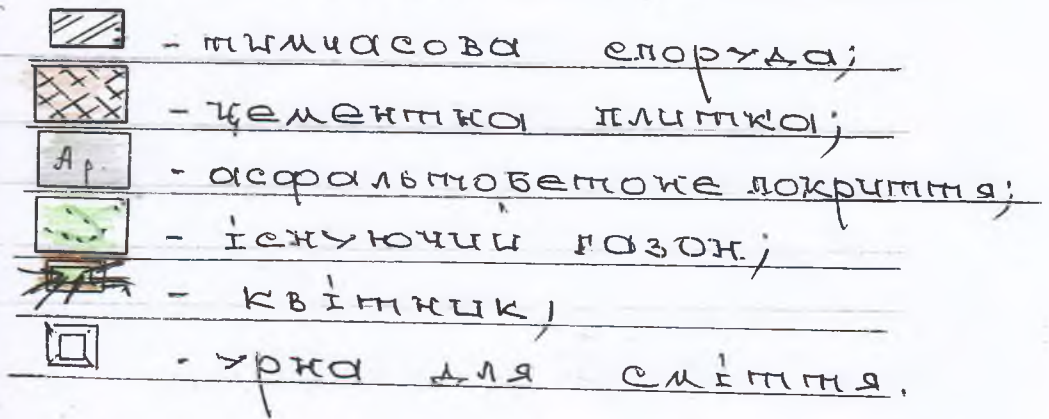 - тимчасова споруда;
- цементна плитка;
Ар. - асфальтобетоне покриття;
- існуючий газон;
- квітник,
- урна для сміття.